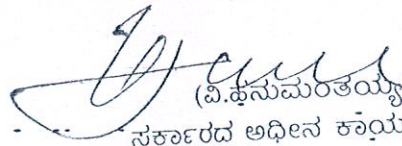 (ವಿ.ಹನುಮಂತಯ್ಯ
ಸರ್ಕಾರದ ಅಧೀನ ಕಾಯ